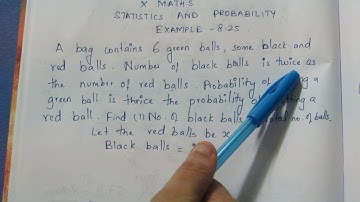 X MATHS
STATISTICS AND PROBABILITY
EXAMPLE - 8.25
A bag contains 6 green balls, some black and
red balls. Number of black balls is twice as
the number of red balls. Probability of a
green ball is thrice the probability of a
red ball. Find (i) No. of black balls no. of balls.
Let the red balls be x
Black balls =